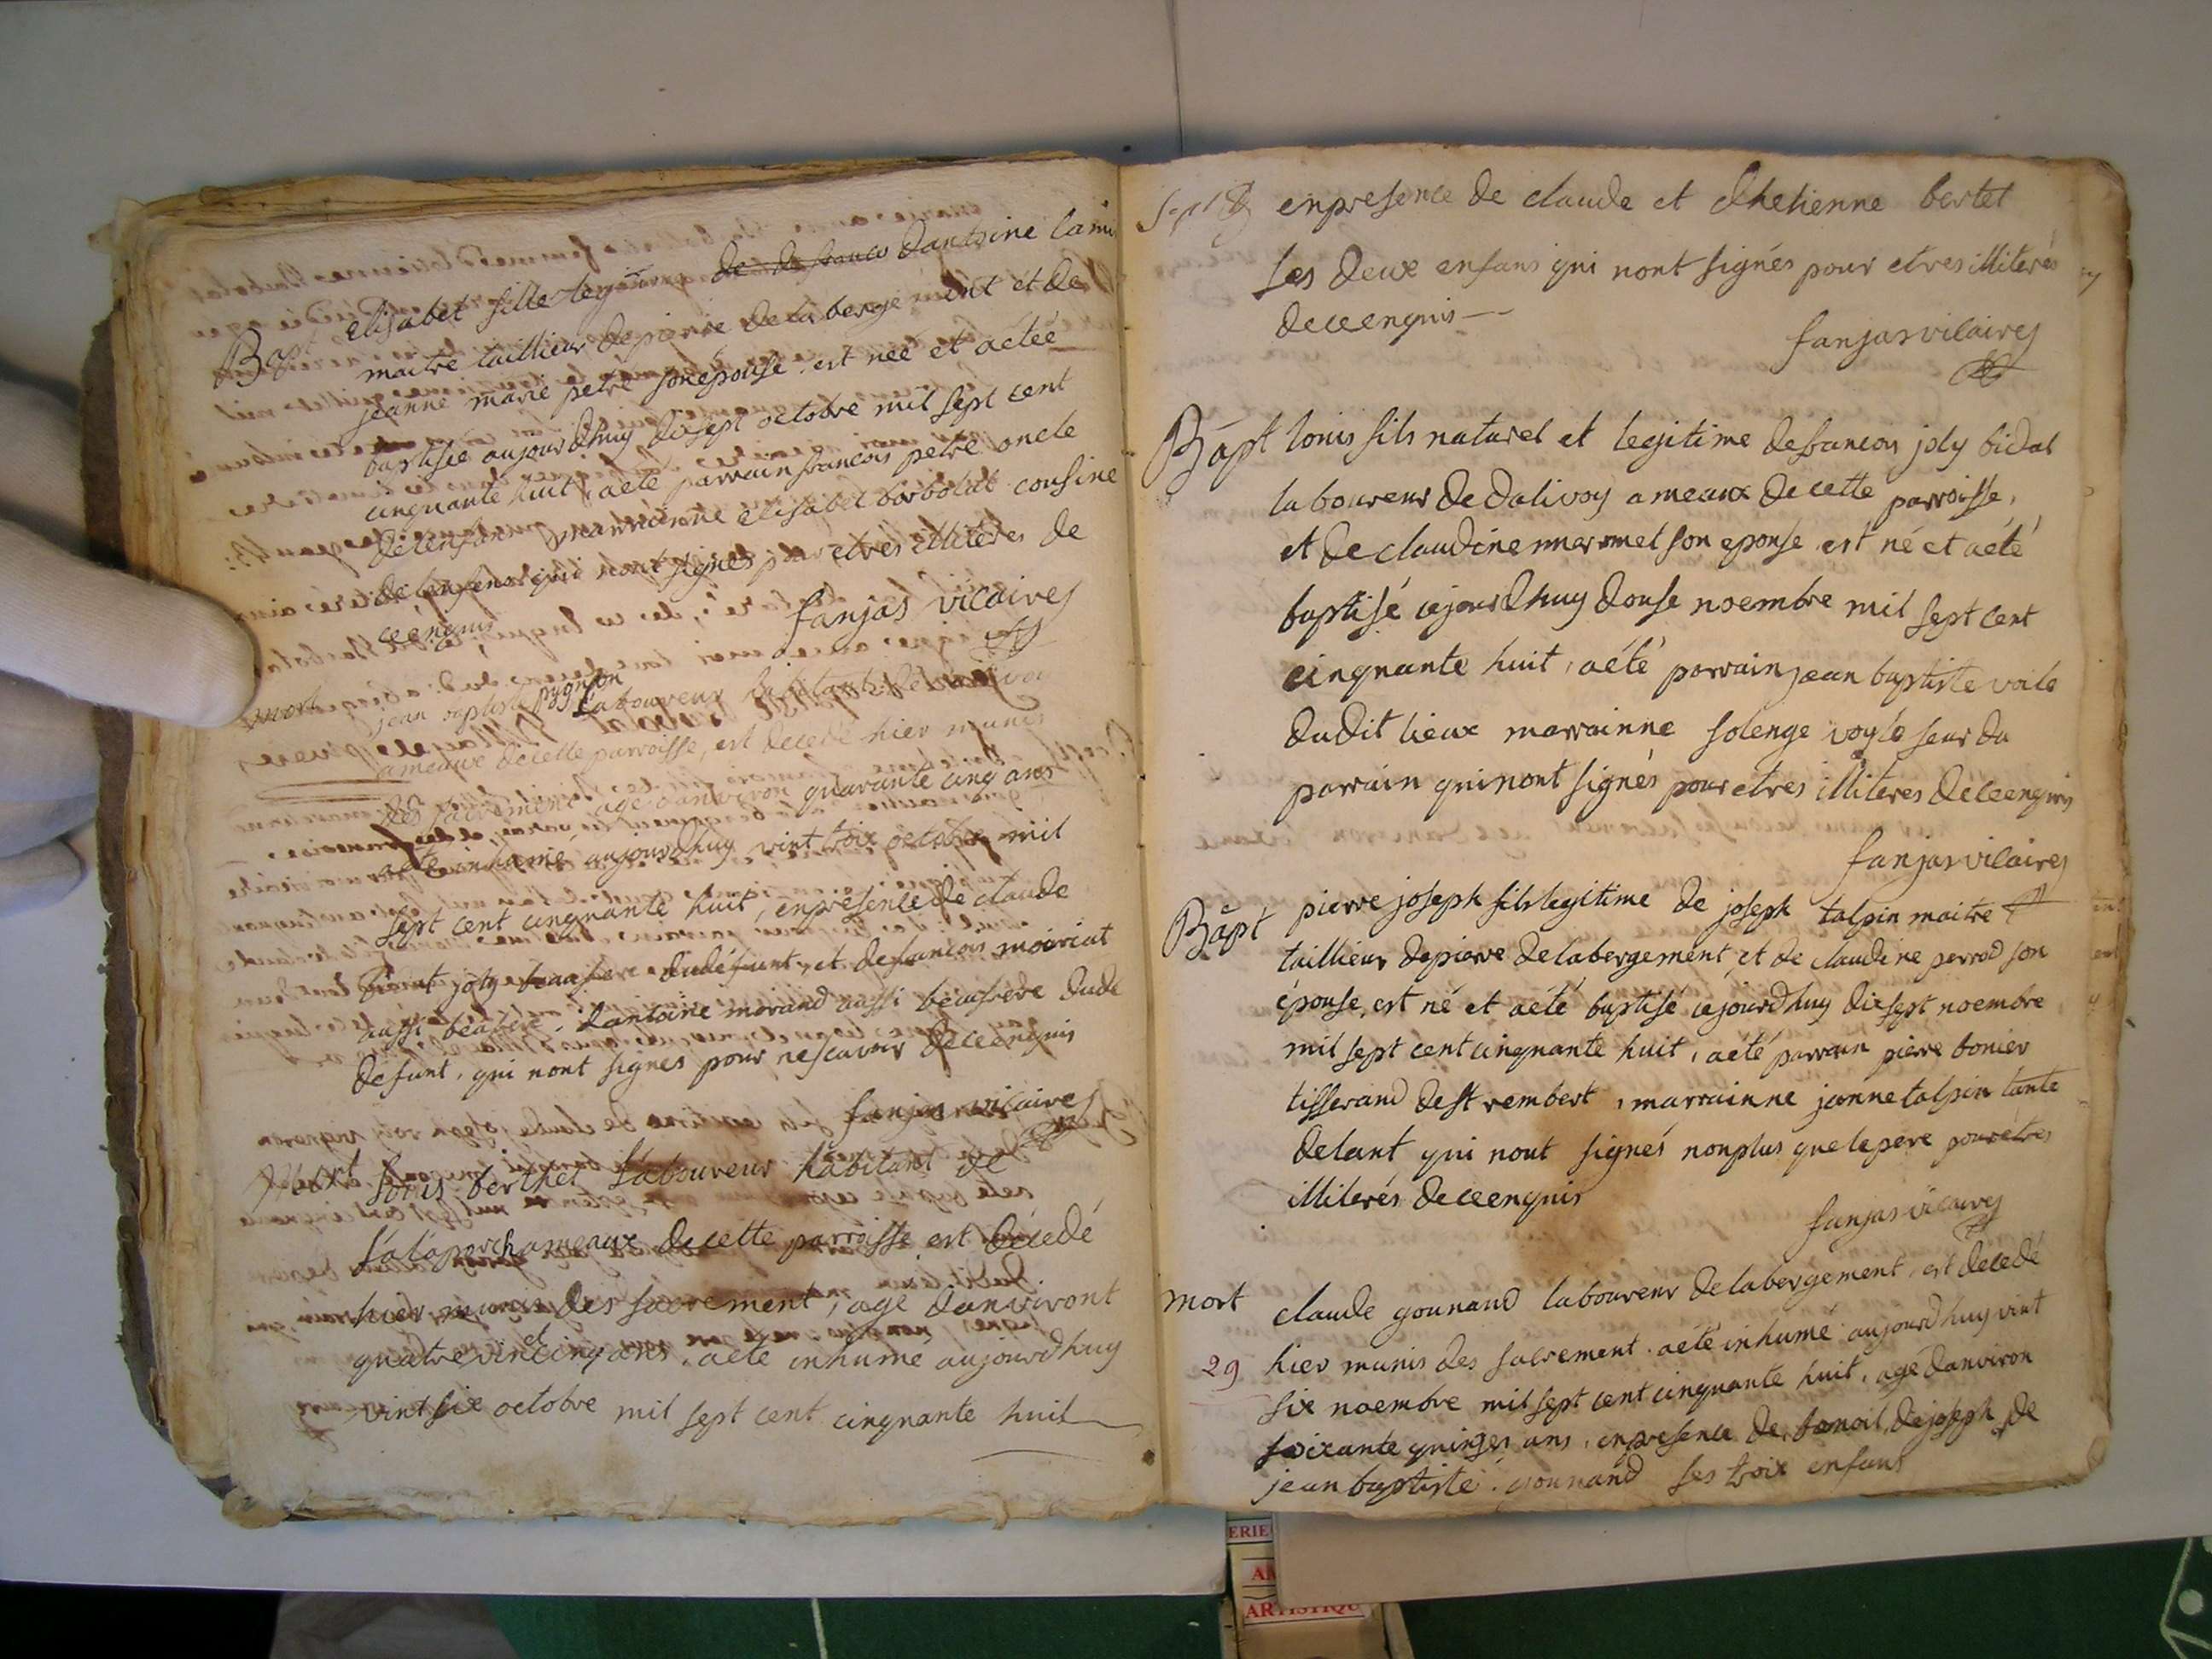 Bapt elisabet fille legit de de francois dantoine lami
maitre taillieur depierre de la bergement et de
jeanne marie petre sonepouse est neé et aétée
baptisée aujourdhuy dixsept octobre mil sept cent
cinquante huit, aété parrain francois petre oncle
delenfant marrainne elisabet borbolat cousine
de lenfens qui nont signés pour etres illiteres de
ceenquis fanjas vicaires
mort jean baptiste pygnion laboureur habitant de
ameaux decette parroisse, est decedé hier munis
des sacrement agé danviron quarante cinq ans
aété inhamé aujourdhuy vint troix octobre mil
sept cent cinquante huit, enpresence de claude
benoit joly beaufrere dudefunt, et defrancois moiriat
aussi beaupere, dantoine morand aussi beaufrere dude
defunt, qui nont signes pour nescavoir deceenquis
fanjas vicaires
mort louis berthet labouveur habitant de
lalaporch ameaux de cette parroisse est décedé
hier munis des sacrement, agé danviront
quatrevint et cinq ans, aété inhumé aujourdhuy
vintsix octobre mil sept cent cinquante huit
enpresence de claude et dhetienne bertet
ses deux enfans qui nont signés pour etres illiterés
deceenquis
fanjas vicaires
Bapt louis fils naturel et legitime defrancois joly bidat
laboureur de dalivoy ameaux de cette parroisse,
et de claudine marmet son eponse est né et aété
baptisé cejourdhuy douse noembre mil sept cent
cinquante huit, aété parrain jean baptiste voile
dudit lieux marrainne solenge voyle seur du
parrain quinont signés pour etres illiteres deceenquis
fanjas vicaires
Bapt pierre joseph fils legitime de joseph talpin maitre
taillieur depierre delabergement et de claudine perrod son
épouse, est né et aété baptisé cejourdhuy dixsept noembre
mil sept cent cinquante huit, aété parrain pierre bonier
tisserand dest rembert, marrainne janne talpin tante
delant qui nont signés nonplus que le pere pour etres
illiterés deceenquis
fanjas vicaires
mort claude gounand laboureur delabergement, est decedé
29 hier munis des sacrement aété inhumé aujourdhuy vint
six noembre mil sept cent cinquante huit, agé danviron
soixante quinzes ans, enpresence de benoit, dejoseph, de
jean baptiste gounand ses troix enfans
ERIE
ARTISTIQU